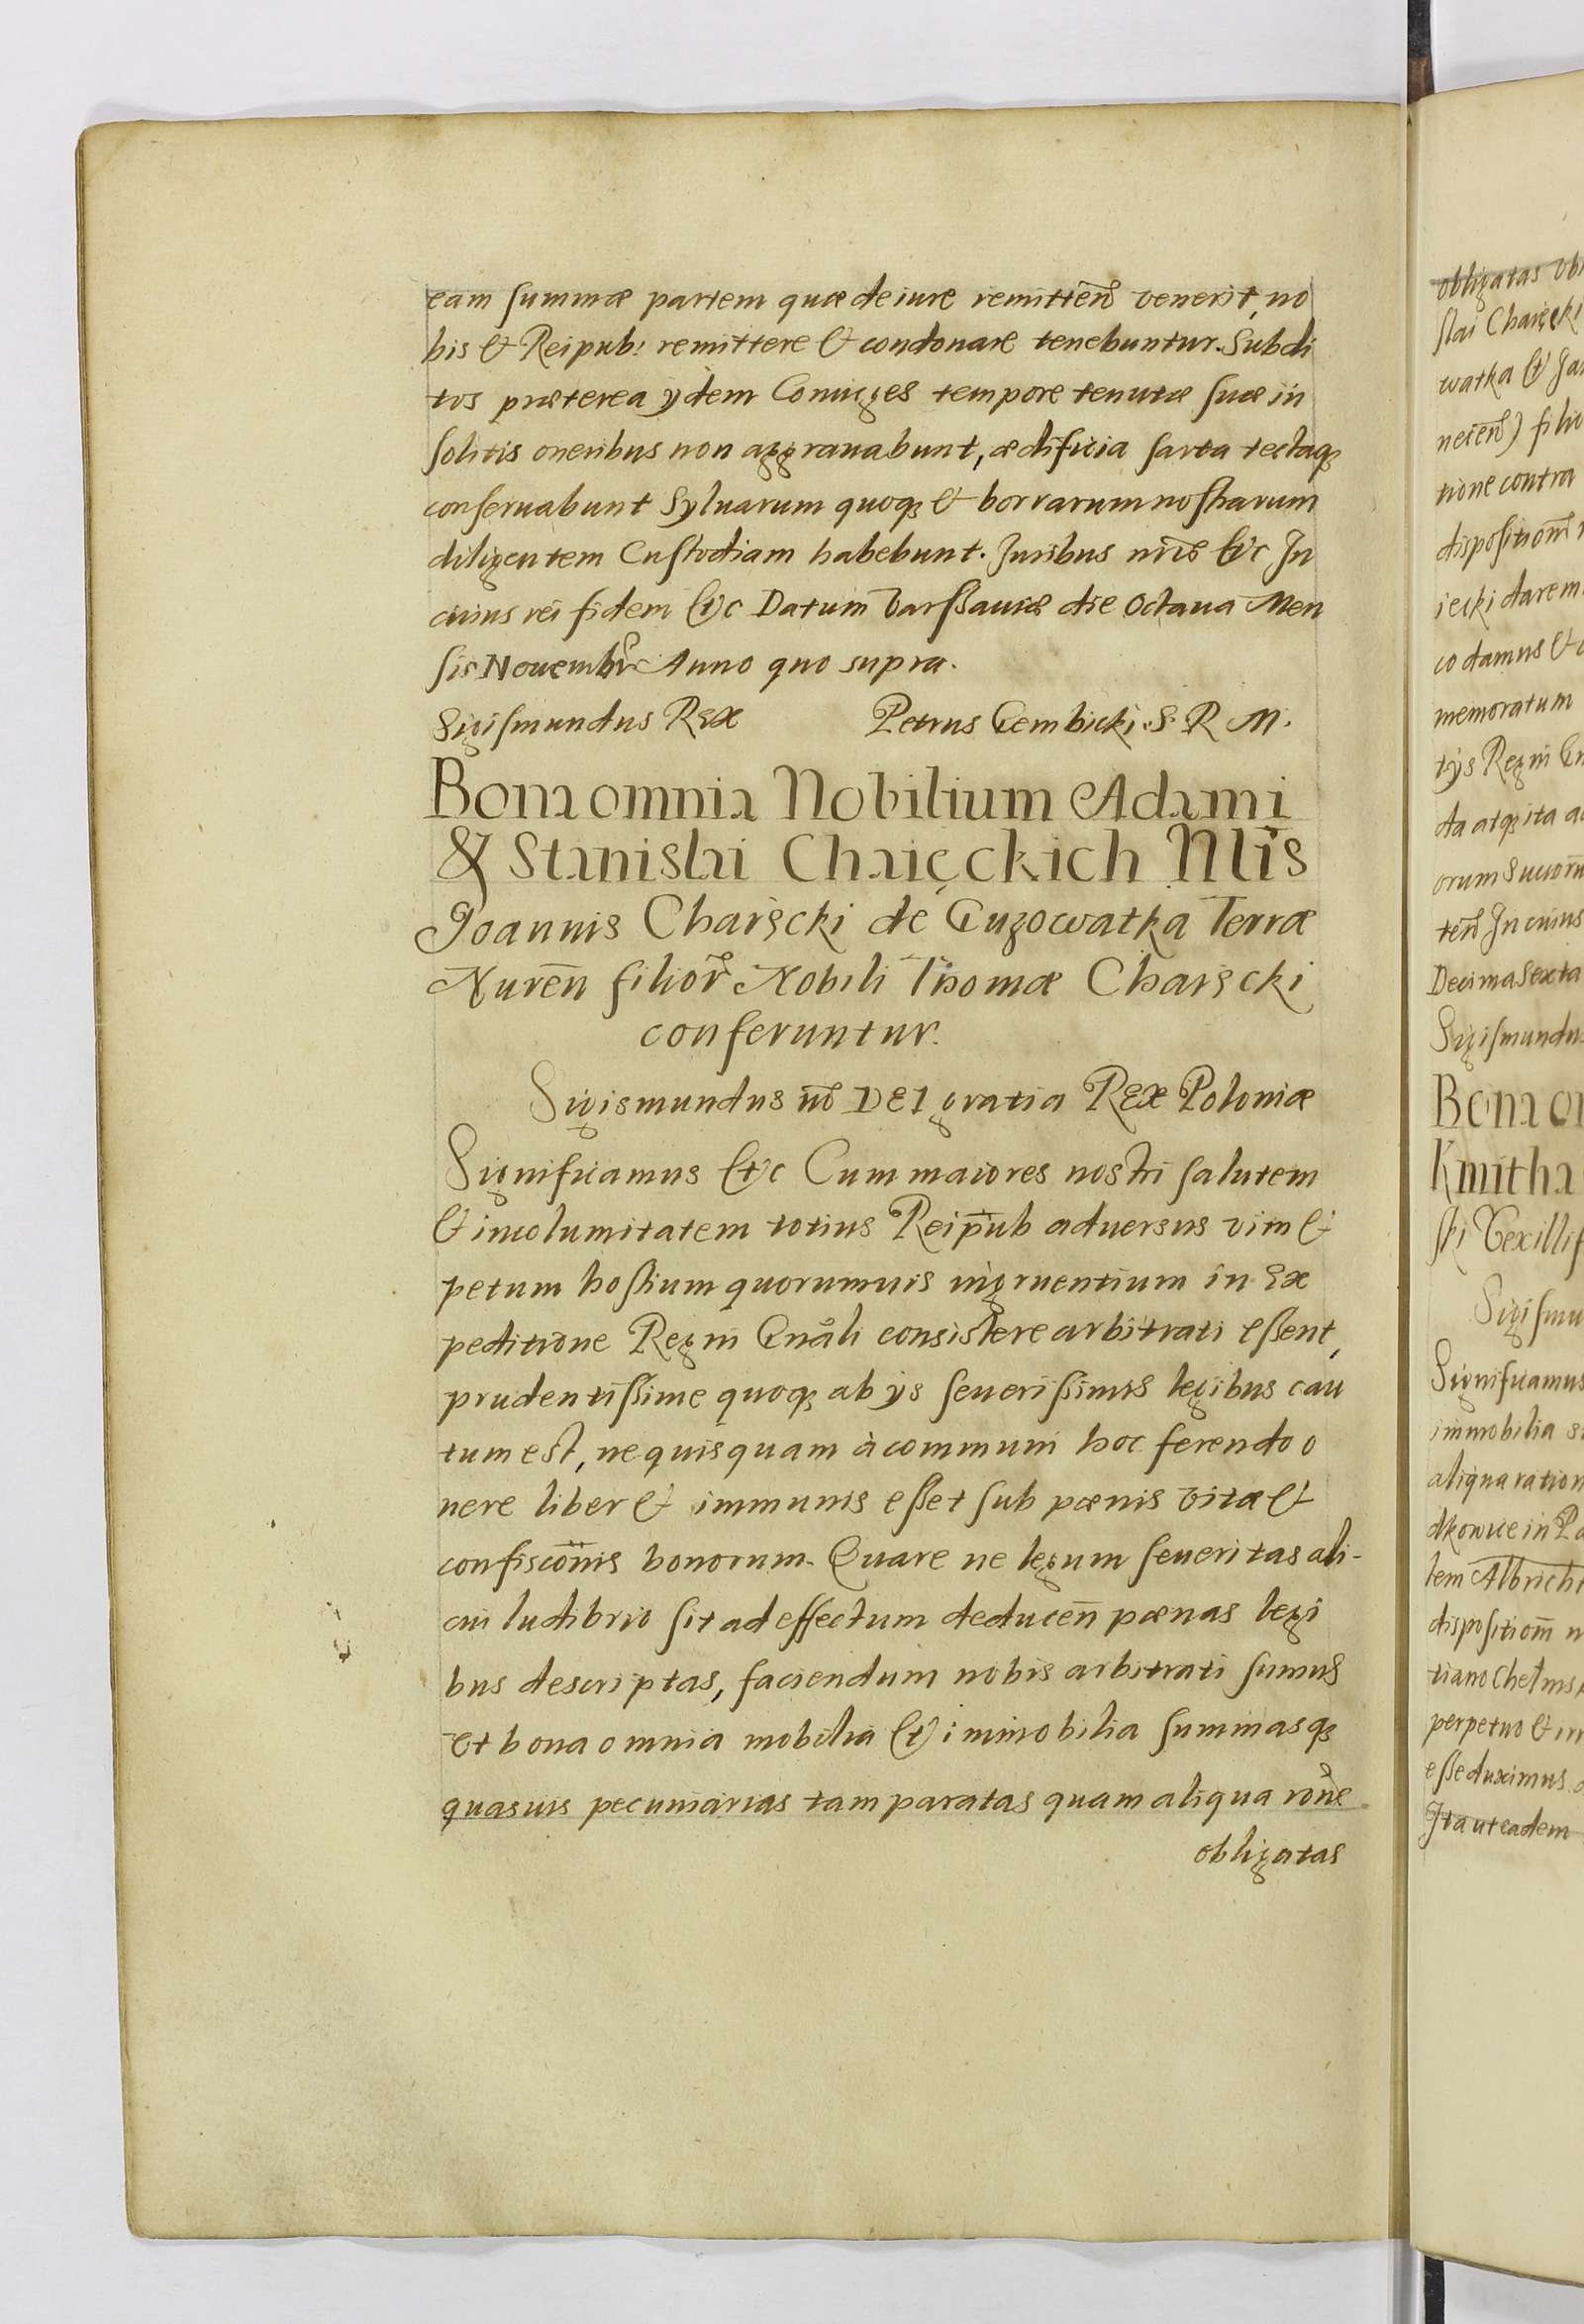 eam summæ partem quæ de iure remitteñ venerit, no
bis & Reipub: remittere & condonare tenebuntur. Subdi
tos præterea ydem Coniuges tempore tenutæ suæ in
solitis oneribus non aggrauabunt, ædificia sarta tectaq;
conseruabunt Syluarum quoq; & borrarum nostrarum
diligentem Custodiam habebunt. Iuribus nr̄is &c In
cuius rei fidem &c Datum Varssauiæ die Octaua Men
sis Nouembr Anno quo supra.
Sigismundus Rex Petrus Gembicki. S. R M.
Bona omnia Nobilium Adami
& Stanislai Chaięckich Nlis
Joannis Chaięcki de Guzowatka Terræ
Nureñ filior Nobili Thomæ Chaięcki
conferuntur.
Sigismundus iiī DEI gratia Rex Poloniæ
Significamus &c Cum maiores nostri salutem
& incolumitatem totius Reipub aduersus vim &
petum hostium quorumuis ingruentium in ex
peditione Regni Gnāli consistere arbitrati essent,
prudentissime quoq; ab ys seuerissimis legibus cau
tum est, ne quisquam à communi hoc ferendo o
nere liber & immunis esset sub pœnis vita &
confiscōnis bonorum. Quare ne legum seueritas ali-
cui ludibrio sit ad effectum deduceñ pœnas legi
bus descriptas, faciendum nobis arbitrati sumus
Vt bona omnia mobilia & immobilia summasq;
quasuis pecuniarias tam paratas quam aliqua rōne
obligatas
obligatas
slai Chaięcki
watka &
filio
tione contra
dispositionē
iecki darem
co damus &
memoratum
tys Regni
da atq; ita
orum
teñ In cuius
Decima Sexta
Sigismundu
Bona o
Kmitha
ski Vexillif
Sigismu
Significamus
immobilia
aliqua ration
dkowce in
tem Albricht
dispositionē
tiano Chelms
perpetuo &
esse duximus
Ita ut eadem